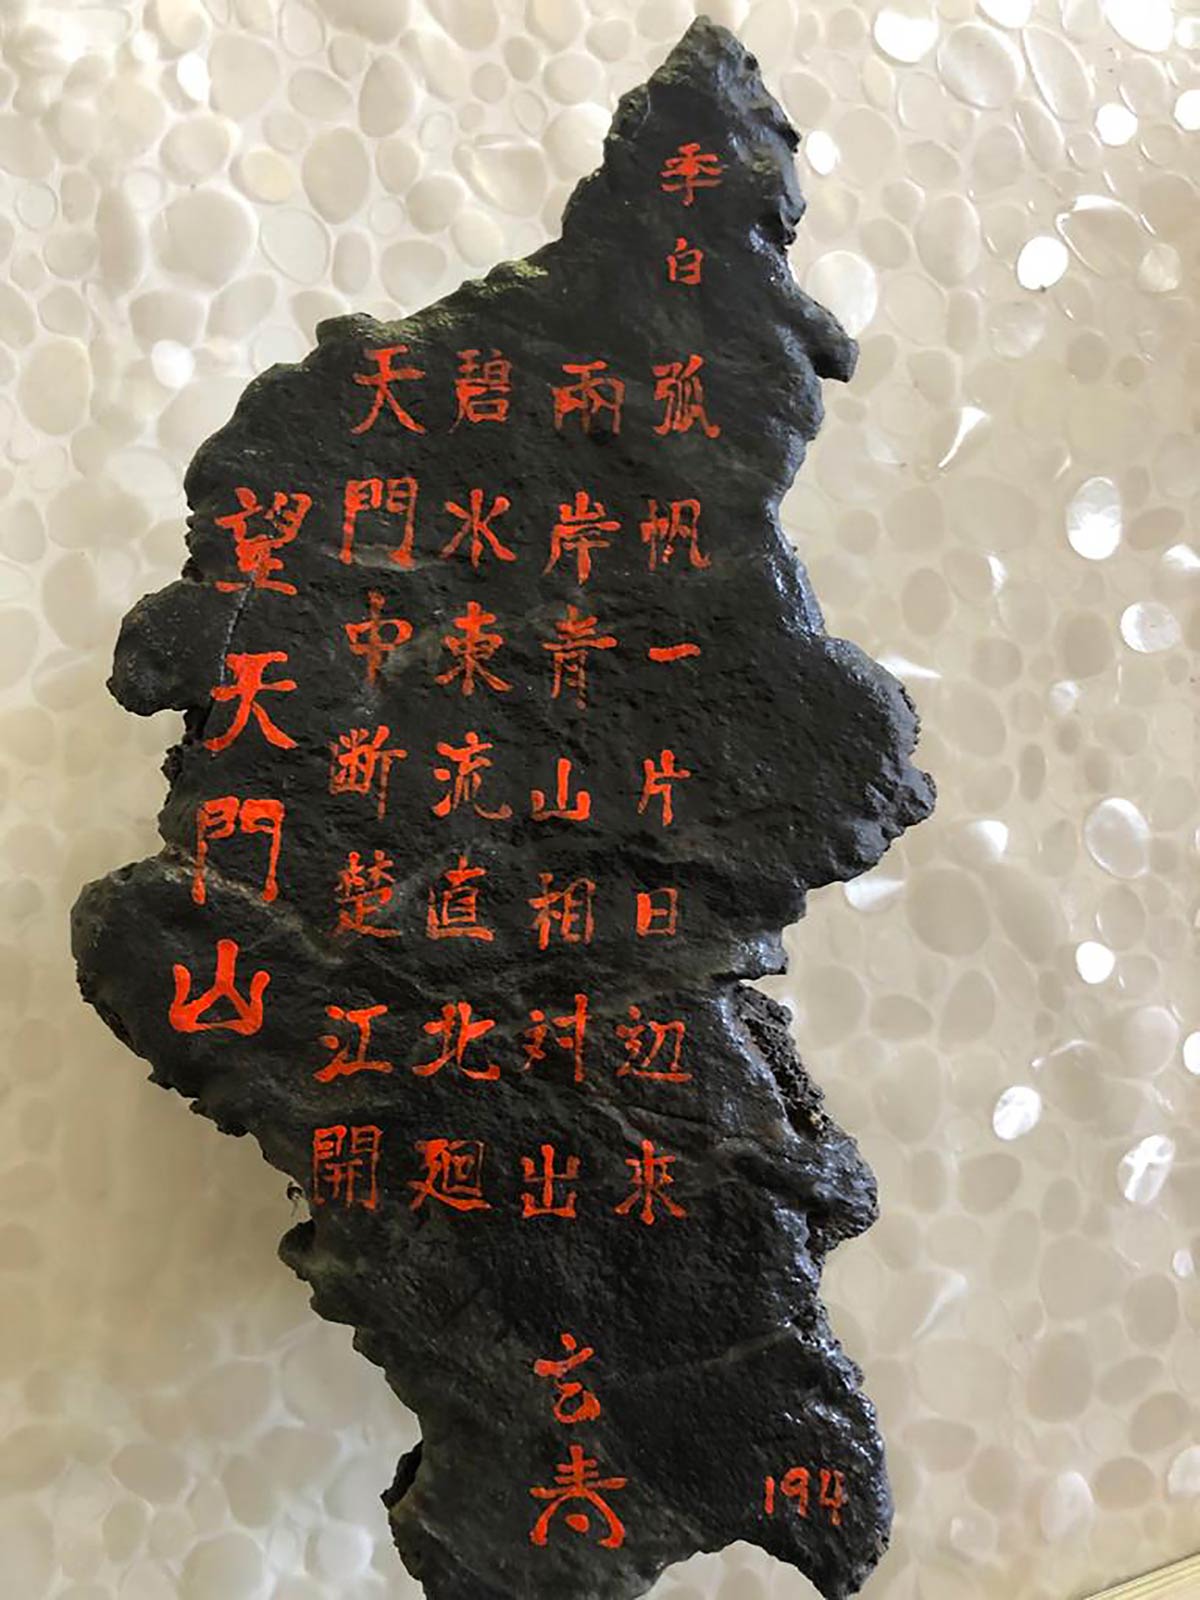 望天門山
天門中断楚江開
碧水東流直北廻
兩岸青山相対出
弧帆一片日辺来
季白
玄寿
194